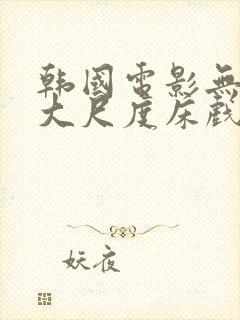 韩國電影無
大尺度床戲
妖夜